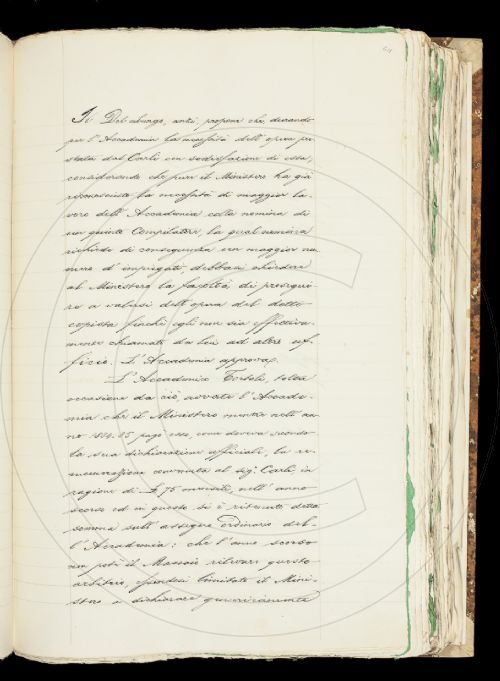 Il Del Lungo, anzi, propone che, durando
per l'Accademia la necessità dell'opera pre
stata dal Carli con sodisfazione di essa,
considerando che pure il Ministero ha già
riconosciuta la necessità di maggior la-
voro dell'Accademia colla nomina di
un quinto Compilatore, la qual nomina
richiede di conseguenza un maggior nu
mero d'impiegati, debbasi chiedere
al Ministero la facoltà di prosegui-
re a valersi dell'opera del detto
copista finchè egli non sia effettiva-
mente chiamato da lui ad altro uf-
ficio. L'Accademia approva.
L'Accademico Tortoli, tolta
occasione da ciò, avverte l'Accade-
mia che il Ministero mentre nell'an
no 1884-85 pagò esso, come doveva secondo
la sua dichiarazione officiale, la re-
munerazione al sig. Carli in
ragione di £ 75 mensili, nell'anno
scorso ed in questo si è ritenuto detta
somma sull'assegno ordinario del-
l'Accademia: che l'anno scorso
non potè il Massaio rilevare questo
arbitrio, essendosi limitato il Mini-
stero a dichiarare genericamente